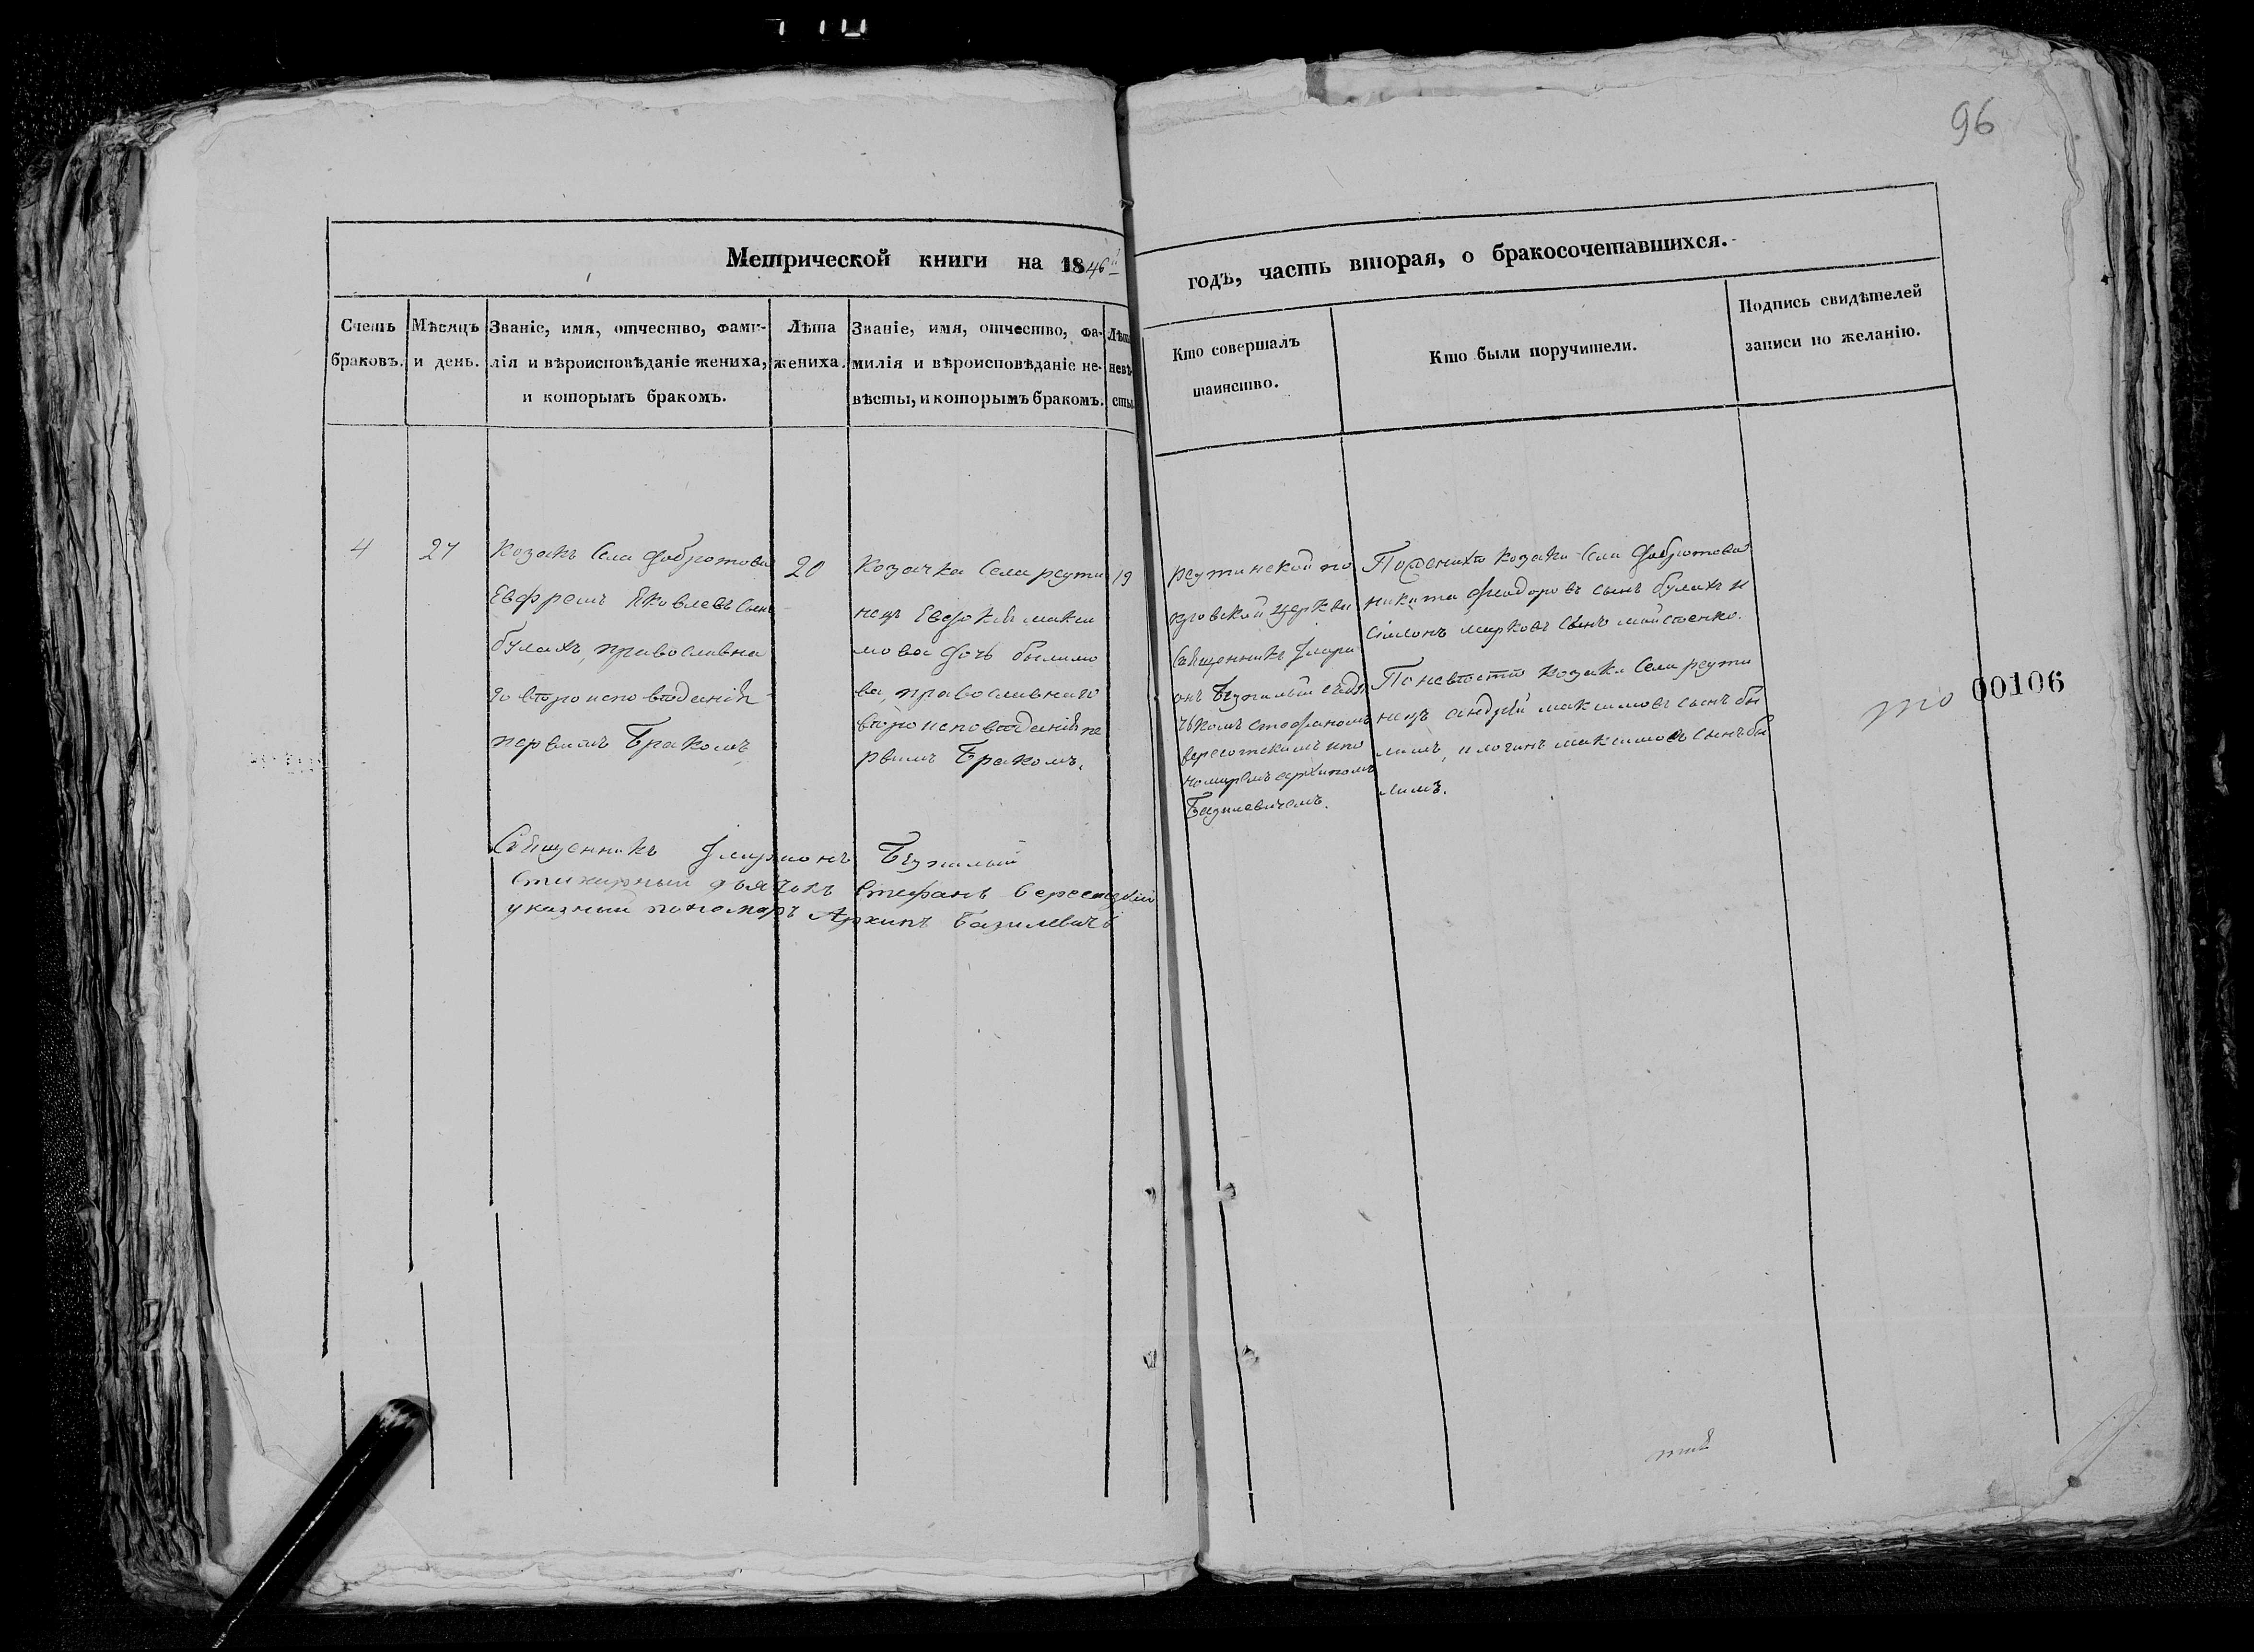 96
Метрической книги на 1846й
годъ, часть вторая, о бракосочетавшихся.
Счетъ браковъ.
Мѣсяцъ и день.
Званіе, имя, отчество, фами-
лія и вѣроисповѣданіе жениха,
и которымъ бракомъ.
Лѣта
жениха.
Званіе, имя, отчество, фа-
милія и вѣроисповѣданіе не-
вѣсты, и которымъ бракомъ.
Лѣта
невѣ-
сты.
Кто совершалъ
таинство.
Кто были поручители.
Подпись свидѣтелей
записи по желанію.
4
27
Козакъ Села Добротова
Евфремъ Яковлевъ Сынъ
булахъ, православна
го вѣроисповѣданія
первымъ Бракомъ
20
Козачка Села реути
нецъ Евдокія макси
мова дочь былимо
ва, православнаго
вѣроисповѣданія пе
рвымъ Бракомъ.
19
реутинской по
кровской церкви
Священникъ
Безпалый съ дья
чкомъ Стефаномъ
и по
номаремъ архипомъ
Базилевичемъ.
По женихѣ козаки Села Добротова
никита феодоровъ сынъ булахъ и
сімеонъ марковъ сынъ
По невѣстѣ козаки Села реути
нецъ андрей максимовъ сынъ бы
лимъ, и логинъ максимовъ сынъ бы
лимъ.
то 00106
Священникъ Безпалый
Стихарный дьячокъ Стефанъ
указный пономарь Архипъ Базилевичъ